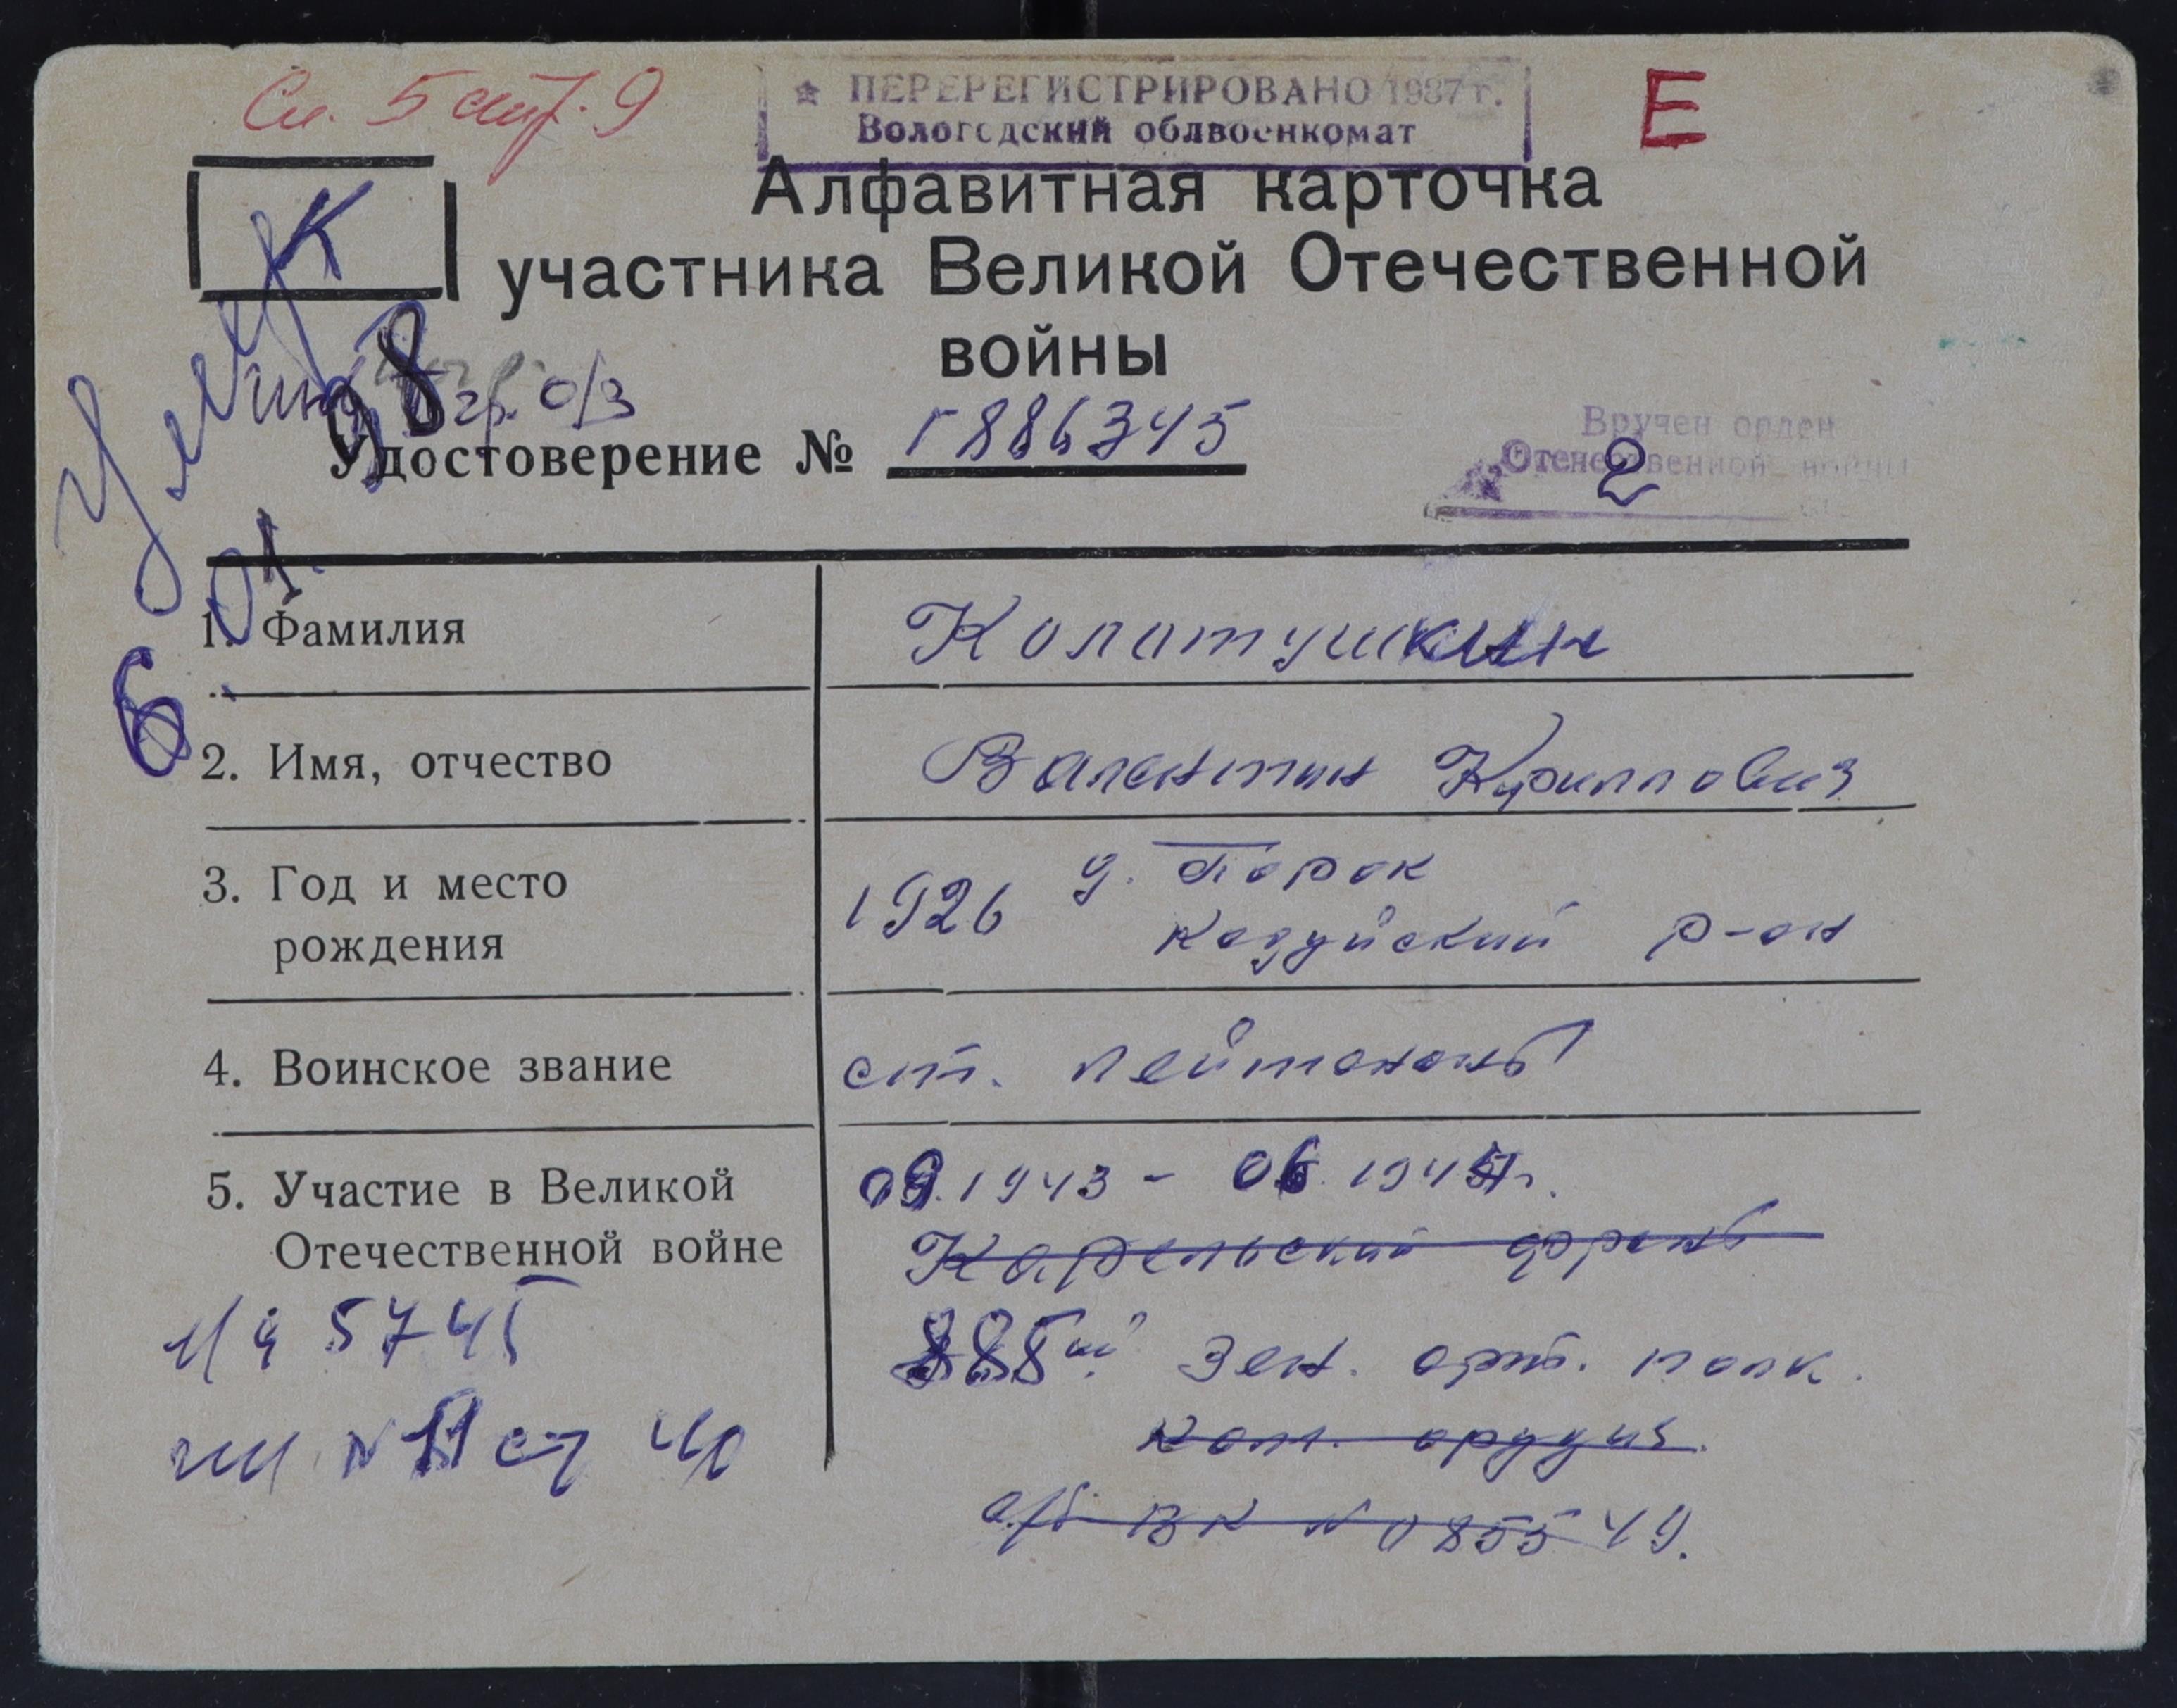 Сп. 5 стр. 9
★ ПЕРЕРЕГИСТРИРОВАНО 1987 г.
Вологодский облвоенкомат
Е
К
Алфавитная карточка
участника Великой Отечественной
войны
Умер
98
гр. О/З
Удостоверение № Г 886345
Вручен орден
Отечественной войны
2
6.01.
1. Фамилия Колотушкин
2. Имя, отчество Валентин Кириллович
3. Год и место рождения 1926 д. Порок
Кадуйский р-он
4. Воинское звание ст. лейтенант
5. Участие в Великой Отечественной войне 09.1943 - 06.1945 г.
Карельский фронт
885ый зен. арт. полк.
ком. орудия.
в/б ВК № 0855 49.
5745
№ 11 ст 40